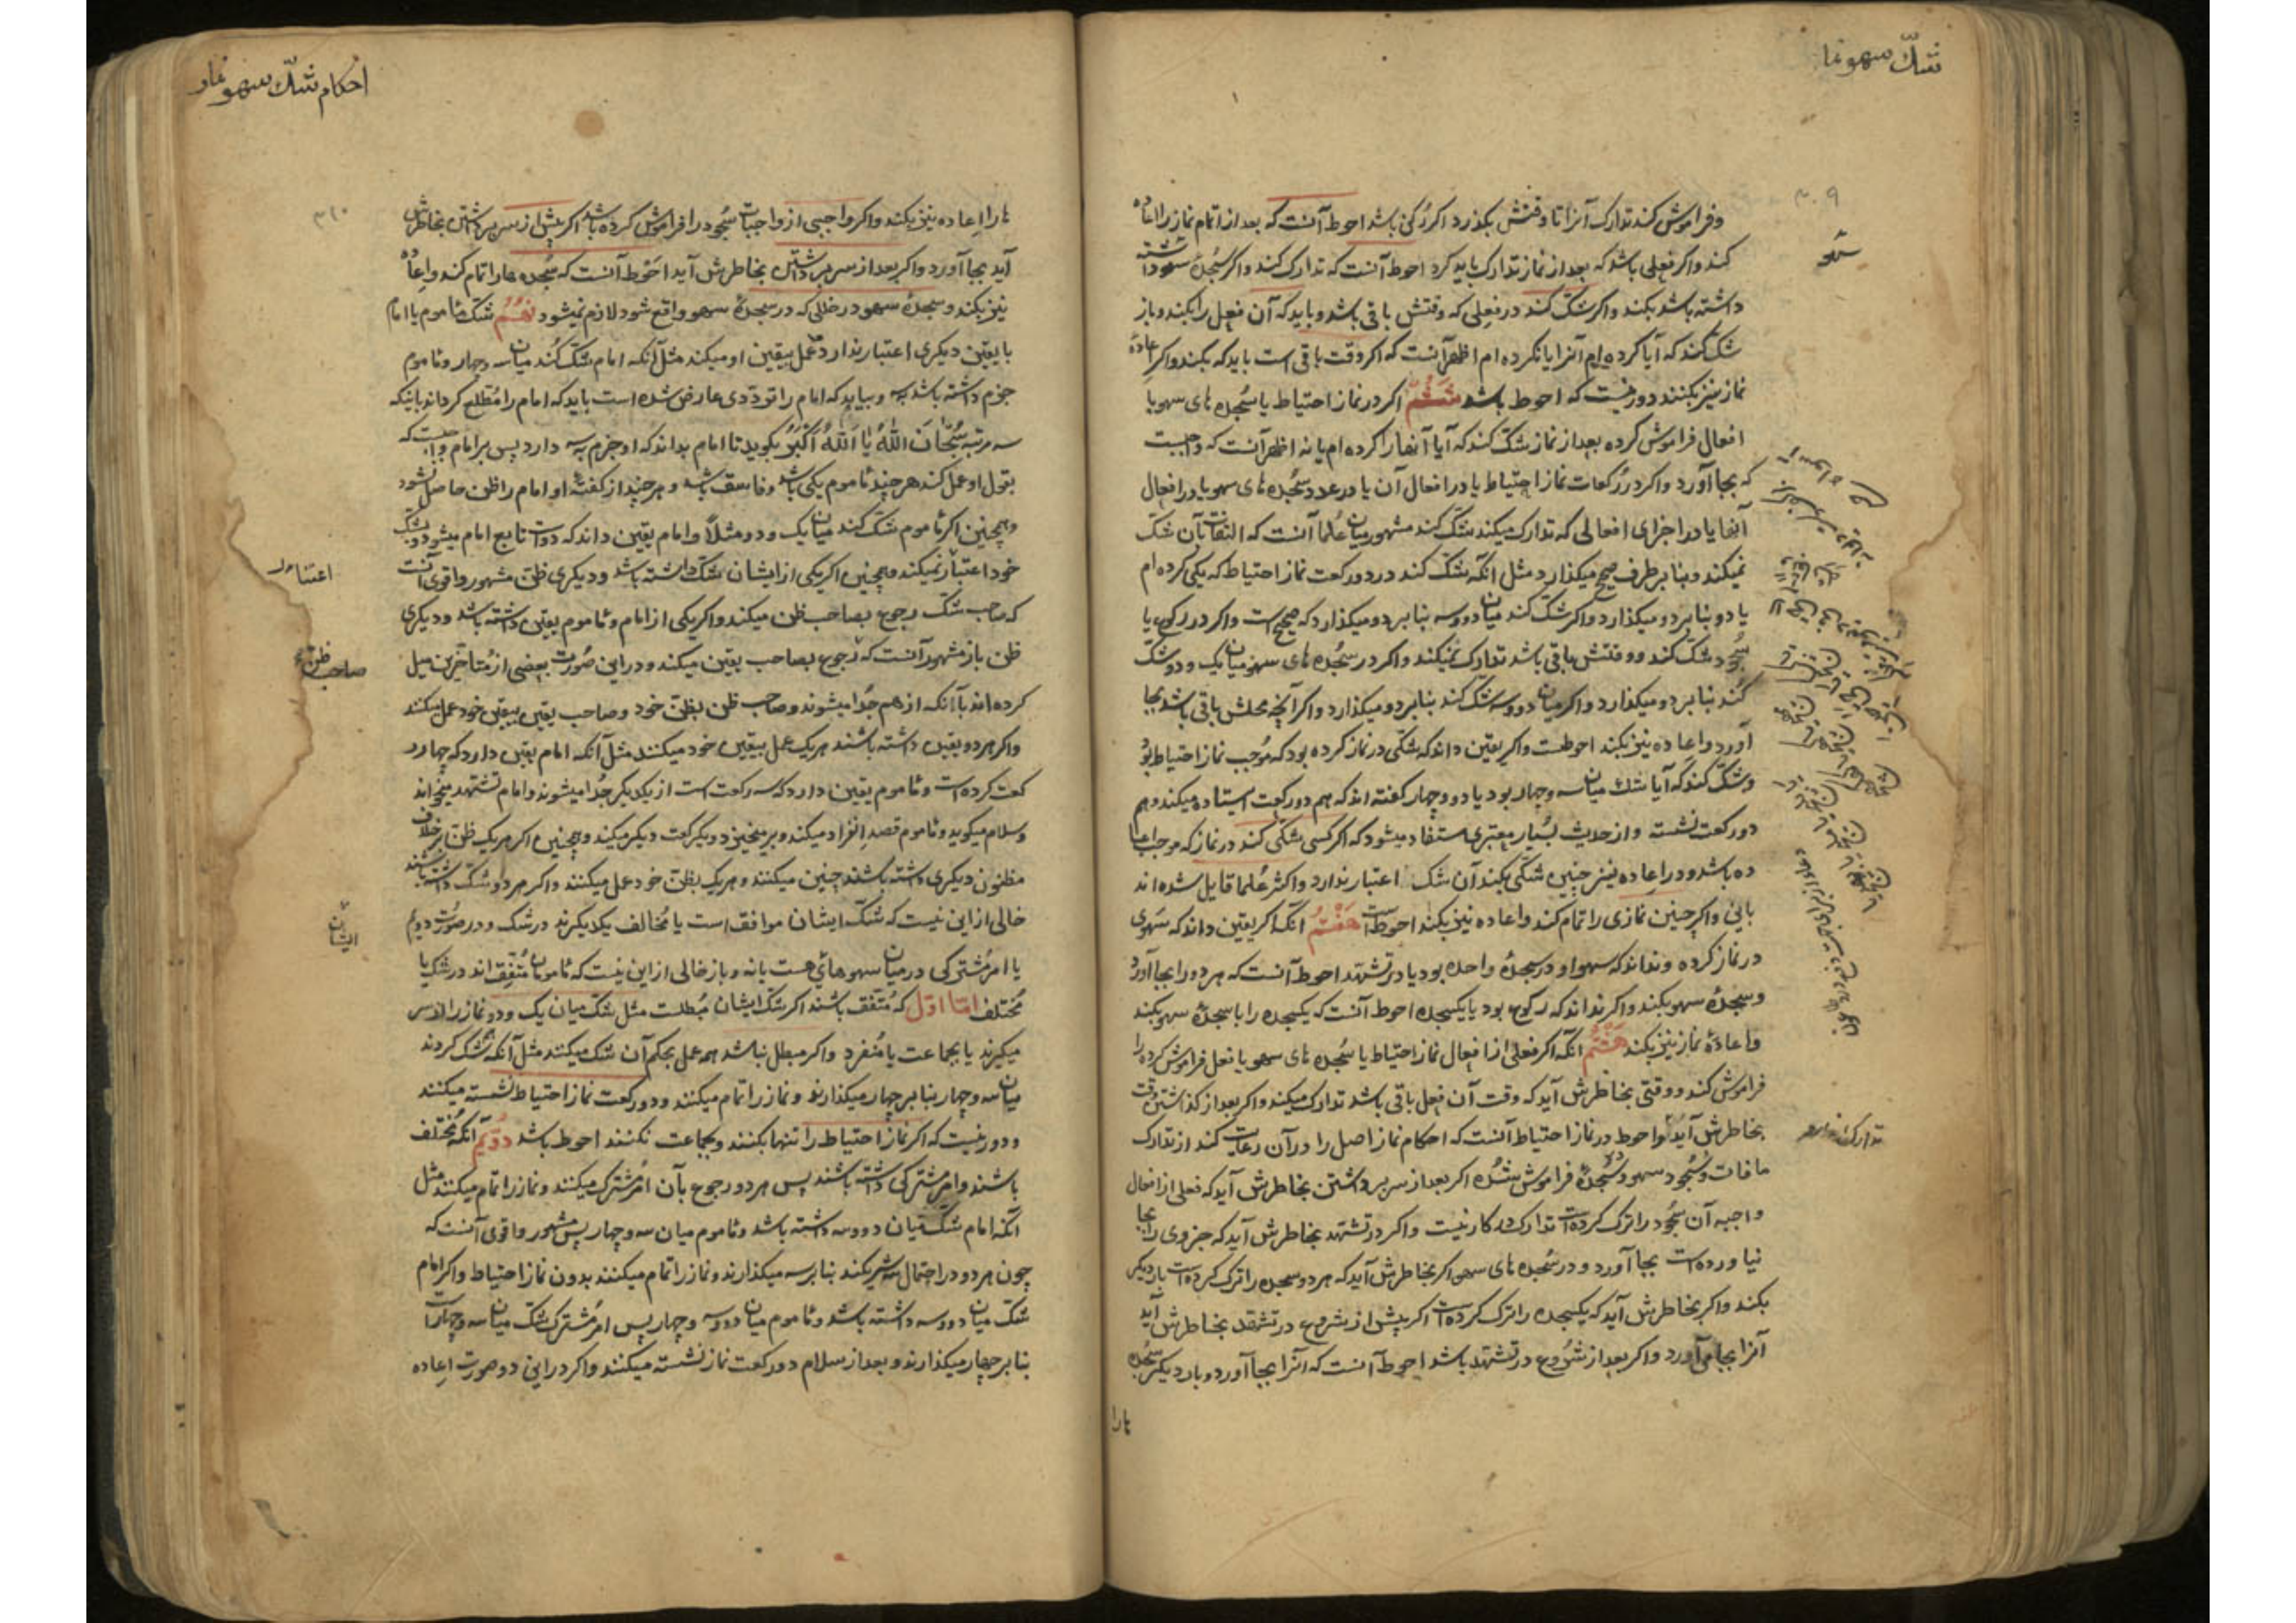 شک سهو نما
وفراموش کند تدارک آنرا تا وقتش بکذرد اکر رکنی باشد احوط آنست که بعد از اتمام نماز را اعاده
کند واکر فعلی باشد که بعد از نماز تدارک باید کرد احوط آنست که تدارک کند واکر سجدهٔ سهو داشته
داشته باشد بکند واکر شک کند در فعلی که وقتش باقی باشد وباید که آن فعل را بکند وباز
شک کند که آیا کرده ام آنرا یا نکرده ام اظهر آنست که اکر وقت باقی است باید که بکند واکر اعادهٔ
نماز نیز بکنند دور نیست که احوط باشد ششم اکر در نماز احتیاط یا سجده های سهو یا
افعال فراموش کرده بعد از نماز شک کند که آیا آنها را کرده ام یا نه اظهر آنست که واجبست
که بجا آورد واکر در رکعات نماز احتیاط یا در افعال آن یا در عدد سجده های سهو یا در افعال
آنها یا در اجزای افعالی که تدارک میکند شک کند مشهور میان علما آنست که التفات بآن شک
نمیکند وبنا بر طرف صحیح میکذارد مثل انکه شک کند در دو رکعت نماز احتیاط که یکی کرده ام
یا دو بنا بر دو میکذارد واکر شک کند میان دو وسه بنا بر دو میکذارد که صحیح است واکر در رکوع یا
سجود شک کند ووقتش باقی باشد تدارک نمیکند واکر در سجده های سهو میان یک ودو شک
کند بنا بر دو میکذارد واکر میان دو وسه شک کند بنا بر دو میکذارد واکر آنچه محلش باقی باشد بجا
آورد واعاده نیز بکند احوطست واکر یقین داند که شکی در نماز کرده بود که موجب نماز احتیاط بود
وشک کند که آیا شک میان سه وچهار بود یا دو وچهار کفته اند که هم دو رکعت ایستاده میکند وهم
دو رکعت نشسته واز حدیث بسیار معتبری مستفاد میشود که اکر کسی شکی کند در نماز که موجب اعا
ده باشد ودر اعاده نیز چنین شکی بکند آن شک اعتبار ندارد واکثر علما قایل شده اند
باین واکر چنین نمازی را تمام کند واعاده نیز بکند احوط است هفتم انکه اکر یقین داند که سهوی
در نماز کرده ونداند که سهو او در سجدهٔ واحده بود یا در تشهد احوط آنست که هر دو را بجا آورد
وسجدهٔ سهو بکند واکر نداند که رکوع بود یا یکسجده احوط آنست که یکسجده را با سجدهٔ سهو بکند
واعادهٔ نماز نیز بکند هشتم انکه اکر فعلی از افعال نماز احتیاط یا سجده های سهو یا فعل فراموش کرده را
فراموش کند ووقتی بخاطرش آید که وقت آن فعل باقی باشد تدارک میکند واکر بعد از کذاشتن وقت
بخاطرش آید واحوط در نماز احتیاط آنست که احکام نماز اصل را در آن رعایت کند از تدارک
مافات وسجود سهو وسجدهٔ فراموش شده اکر بعد از سر برداشتن بخاطرش آید که فعلی از افعال
واجبه آن سجود را ترک کرده است تدارک در کار نیست واکر در تشهد بخاطرش آید که جزوی را بجا
نیاورده است بجا آورد ودر سجده های سهو اکر بخاطرش آید که هر دو سجده را ترک کرده است بار دیکر
بکند واکر بخاطرش آید که یکسجده را ترک کرده است اکر پیش از شروع در تشهد بخاطرش آید
آنرا بجا می آورد واکر بعد از شروع در تشهد باشد احوط آنست که آنرا بجا آورد وبار دیکر سجده
هارا
احکام شک سهو نماز
هارا اعاده نیز بکند واکر واجبی از واجبات سجود را فراموش کرده باشد اکر پیش از سر برداشتن بخاطرش
آید بجا آورد واکر بعد از سر برداشتن بخاطرش آید احوط آنست که سجده ها را تمام کند واعاده
نیز بکند وسجدهٔ سهو در خللی که در سجدهٔ سهو واقع شود لازم نمیشود نهم شک ماموم با امام
با یقین دیکری اعتبار ندارد وعمل بیقین او میکند مثل آنکه امام شک کند میان سه وچهار وماموم
جزم داشته باشد بسه وبیابد که امام را ترددی عارض شده است باید که امام را مطلع کرداند باینکه
سه مرتبه سبحان الله یا الله اکبر بکوید تا امام بداند که او جزم بسه دارد پس بر امام واجبست که
بقول او عمل کند هر چند ماموم یکی باشد وفاسق باشد وهر چند از کفتهٔ او امام را ظن حاصل نشود
وهمچنین اکر ماموم شک کند میان یک ودو مثلاً وامام یقین داند که دو است تابع امام میشود وبشک
خود اعتبار نمیکند وهمچنین اکر یکی از ایشان شک داشته باشد ودیکری ظن مشهور واقوی آنست
که صاحب شک رجوع بصاحب ظن میکند واکر یکی از امام وماموم یقین داشته باشد ودیکری
ظن باز مشهور آنست که رجوع بصاحب یقین میکند ودر این صورت بعضی از متاخرین میل
کرده اند بآنکه از هم جدا میشوند وصاحب ظن بظن خود وصاحب یقین بیقین خود عمل میکند
واکر هر دو یقین داشته باشند هر یک عمل بیقین خود میکنند مثل آنکه امام یقین دارد که چهار ر
کعت کرده است وماموم یقین دارد که سه رکعت است از یکدیکر جدا میشوند وامام تشهد میخواند
وسلام میکوید وماموم قصد انفراد میکند وبر میخیزد ویکرکعت دیکر میکند وهمچنین اکر هر یک ظن بر خلاف
مظنون دیکری داشته باشند چنین میکنند وهر یک بظن خود عمل میکنند واکر هر دو شک داشته باشند
خالی از این نیست که شک ایشان موافق است یا مخالف یکدیکرند در شک ودر صورت دویم
یا امر مشترکی در میان سهوهای هست یا نه وباز خالی از این نیست که مامومان متفق اند در شک یا
مختلف اما اول که متفق باشند اکر شک ایشان مبطلست مثل شک میان یک ودو نماز را از سر
میکیرند یا بجماعت یا منفرد واکر مبطل نباشد همه عمل بحکم آن شک میکنند مثل آنکه شک کردند
میان سه وچهار بنا بر چهار میکذارند ونماز را تمام میکنند ودو رکعت نماز احتیاط نشسته میکنند
ودور نیست که اکر نماز احتیاط را تنها بکنند وبجماعت نکنند احوط باشد دویم آنکه مختلف
باشند وامر مشترکی داشته باشند پس هر دو رجوع بآن امر مشترک میکنند ونماز را تمام میکنند مثل
آنکه امام شک میان دو وسه داشته باشد وماموم میان سه وچهار پس مشهور واقوی آنست که
چون هر دو در احتمال سه شریکند بنا بر سه میکذارند ونماز را تمام میکنند بدون نماز احتیاط واکر امام
شک میان دو وسه داشته باشد وماموم میان دو وسه وچهار پس امر مشترک شک میان سه وچهار است
بنا بر چهار میکذارند وبعد از سلام دو رکعت نماز نشسته میکنند واکر در این دو صورت اعاده
صاحب ظن
ایشان